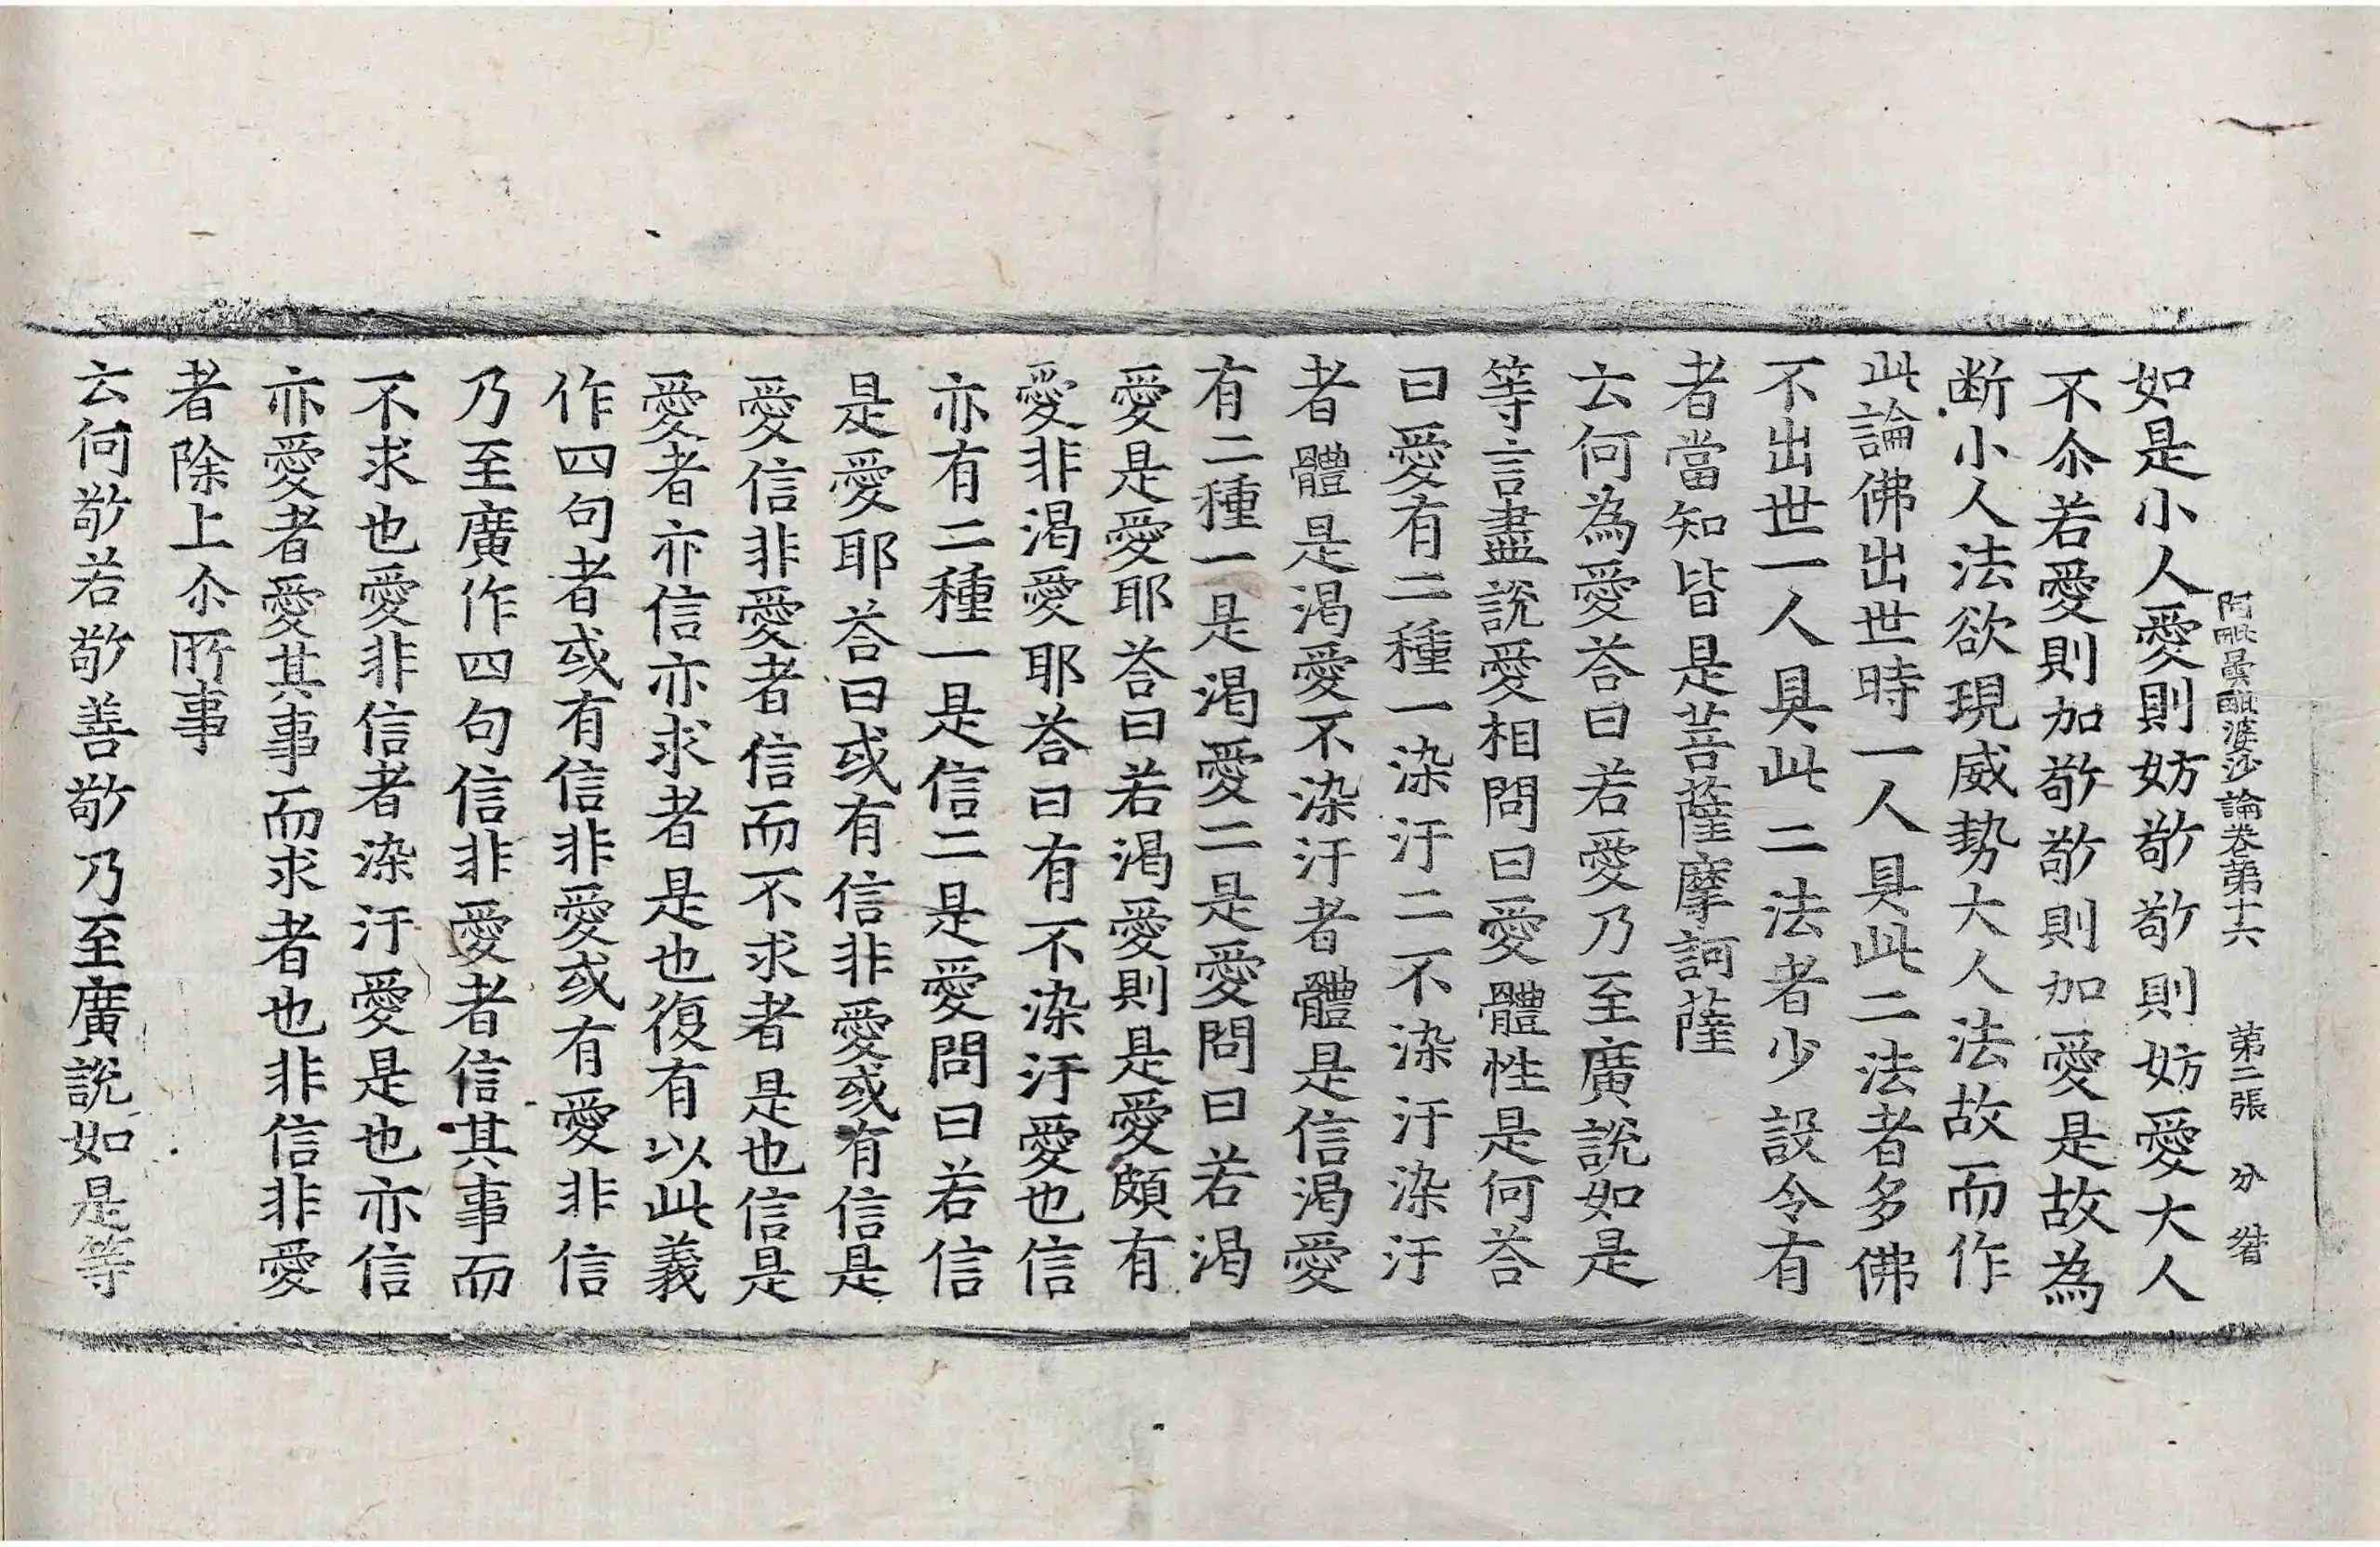 阿毗曇毗婆沙論卷第十六 第二張 分
如是小人愛則妨敬敬則妨愛大人
不尒若愛則加敬敬則加愛是故為
断小人法欲現威勢大人法故而作
此論佛出世時一人具此二法者多佛
不出世一人具此二法者少設令有
者當知皆是菩薩摩訶薩
云何為愛荅曰若愛乃至廣說如是
等言盡說愛相問曰愛體性是何荅
曰愛有二種一染汙二不染汙染汙
者體是渴愛不染汙者體是信渴愛
有二種一是渴愛二是愛問曰若渴
愛是愛耶荅曰若渴愛則是愛頗有
愛非渴愛耶荅曰有不染汙愛也信
亦有二種一是信二是愛問曰若信
是愛耶荅曰或有信非愛或有信是
愛信非愛者信而不求者是也信是
愛者亦信亦求者是也復有以此義
作四句者或有信非愛或有愛非信
乃至廣作四句信非愛者信其事而
不求也愛非信者染汙愛是也亦信
亦愛者愛其事而求者也非信非愛
者除上尒所事
云何敬若敬善敬乃至廣說如是等